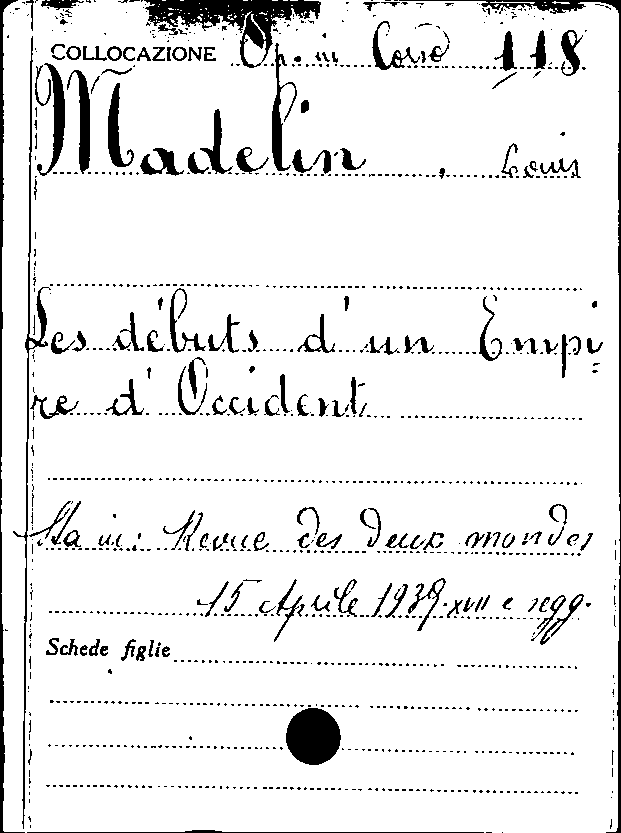 COLLOCAZIONE Op. in Corso 118
Madelin, Louis
Les débuts d'un Empi=
re d'Occident
Sta in: Revue des deux mondes
15 Aprile 1939. XVII e segg.
Schede figlie